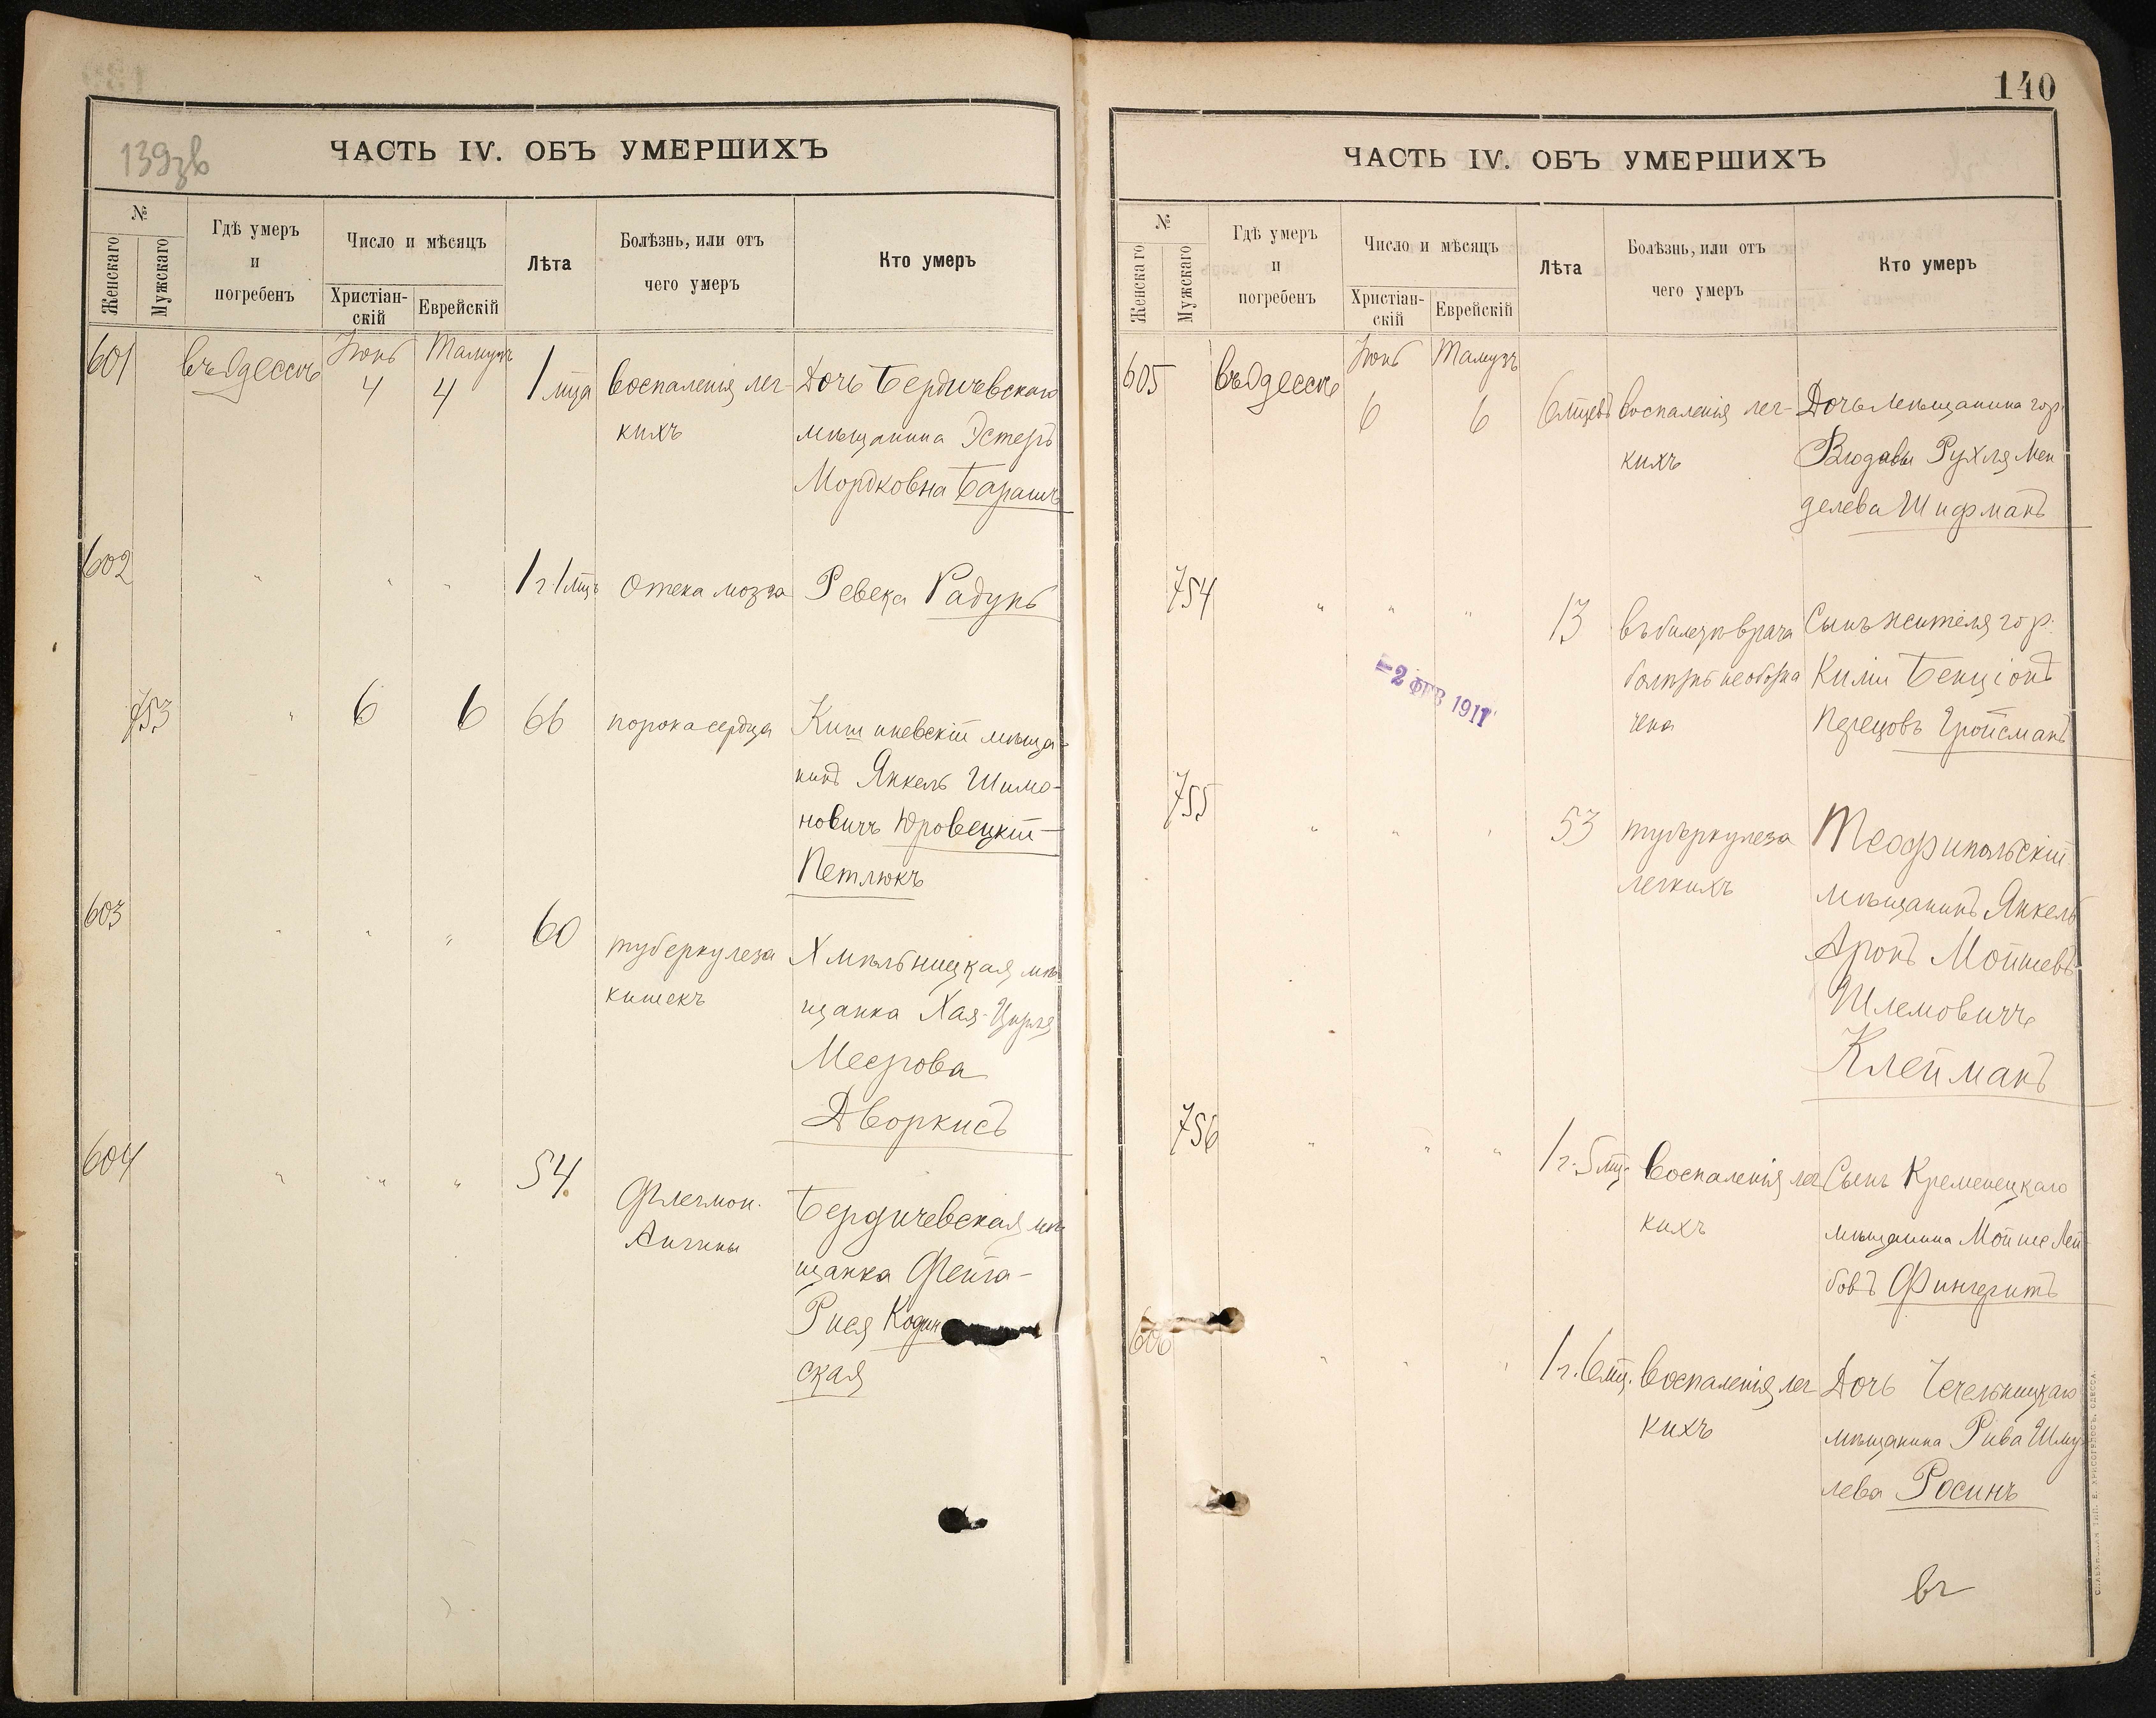 139зв
ЧАСТЬ IV. ОБЪ УМЕРШИХЪ
№
Женскаго
Мужскаго
Гдѣ умеръ
и
погребенъ
Число и мѣсяцъ
Христіан-
скій
Еврейскій
Лѣта
Болѣзнь, или отъ
чего умеръ
Кто умеръ
601 въ Одессѣ Іюнь 4 Тамузъ 4 1 мца воспаленія лег- Дочь Бердичевскаго
кихъ мѣщанина Эстеръ
Мордковна Барашъ
602 " " " 1 г 1 мцъ отека мозга Ревека Радунь
753 " 6 6 66 порока сердца Кишиневскій мѣща-
нинъ Янкель Шимо-
новичъ Юровецкій-
Петлюкъ
603 " " " 60 туберкулеза Хмѣльницкая мѣ
кишекъ щанка Хая-Цирля
Меерова
Дворкисъ
604 " " " 54. Флегмон. Бердичевская мѣ
Ангины щанка Фейга-
Рися
ская
140
ЧАСТЬ IV. ОБЪ УМЕРШИХЪ
№
Женскаго
Мужскаго
Гдѣ умеръ
и
погребенъ
Число и мѣсяцъ
Христіан-
скій
Еврейскій
Лѣта
Болѣзнь, или отъ
чего умеръ
Кто умеръ
605 въ Одессѣ Іюнь 6 Тамузъ 6 6 мцевъ воспаленія лег- Дочь мѣщанина гор.
кихъ Влодавы Рухля Мен
делева Шифманъ
754 " " " 13 въ билетѣ врача Сынъ жителя гор.
болѣзнь необозна Киліи Бенціонъ
чена Перецовъ Гройсманъ
-2 ФЕВ 1911
755 " " " 53 туберкулеза Теофипольскій
легкихъ мѣщанинъ Янкель
Аронъ Мойшевъ-
Шлемовичъ
Клейманъ
756 " " " 1 г. 5 мц. воспаленія лег Сынъ Кременецкаго
кихъ мѣщанина Мойше Лей
бовъ Фингеритъ
606 " " " 1 г. 6 мц. воспаленія лег Дочь Чечельницкаго
кихъ мѣщанина Рива Шму
лева Росинъ